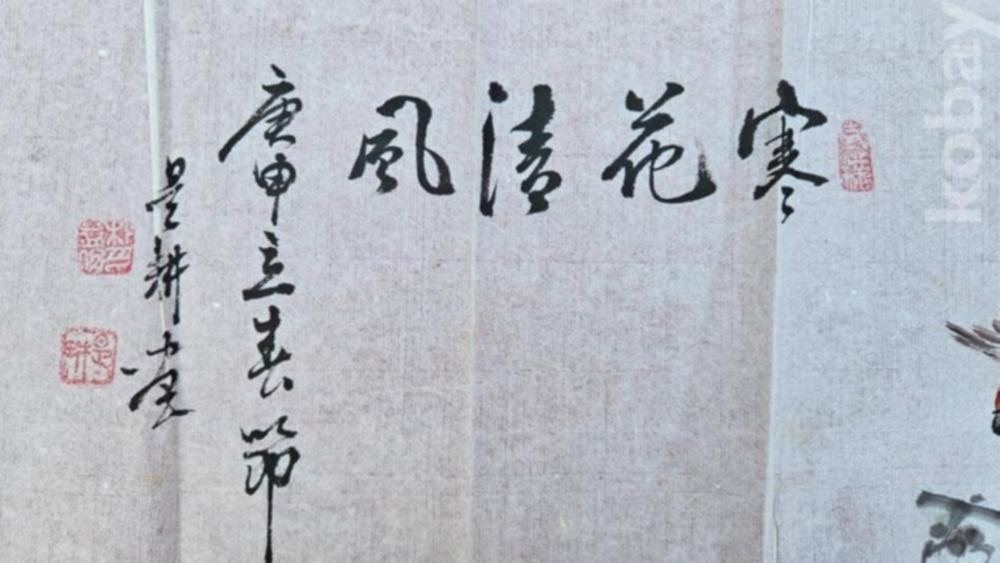 寒花清風
庚申立春節
是耕
kobay